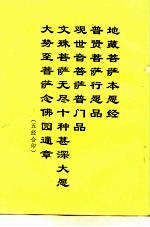 地藏菩萨本愿经
普贤菩萨行愿品
观世音菩萨普门品
文殊菩萨无尽十种甚深大愿
大势至菩萨念佛圆通章
（五经合印）